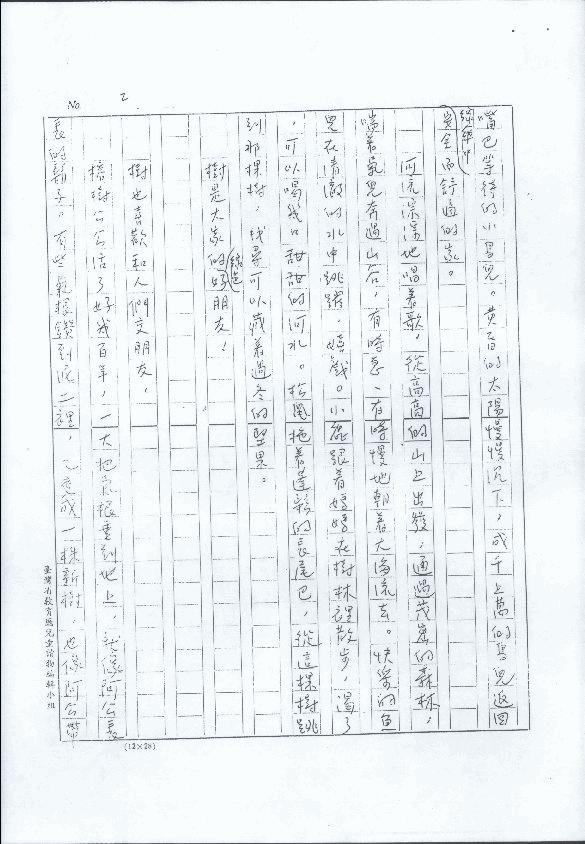 No 2
嘴巴等待的小鳥兒。黃昏的太陽慢慢沉下，成千上萬的鳥兒返回
安全而舒適的家。
河流深深地唱著歌，從高高的山上出發，通過茂密的森林，
喘著氣兒奔過山谷，有時急、有時慢地朝著大海流去。快樂的魚
兒在清澈的水中跳躍、嬉戲。小熊跟著媽媽在樹林裡散步，渴了
，可以喝幾口甜甜的河水。松鼠拖著蓬鬆的長尾巴，從這棵樹跳
到那棵樹，找尋可以藏著過冬的堅果。
樹是大家的好朋友！
樹也喜歡和人們交朋友，
榕樹公公活了好幾百年，一大把氣根垂到地上，就像阿公長
長的鬍子。有些氣根鑽到泥土裡，變成一株新樹，也像阿公
臺灣省教育廳兒童讀物編輯小組
(12×28)